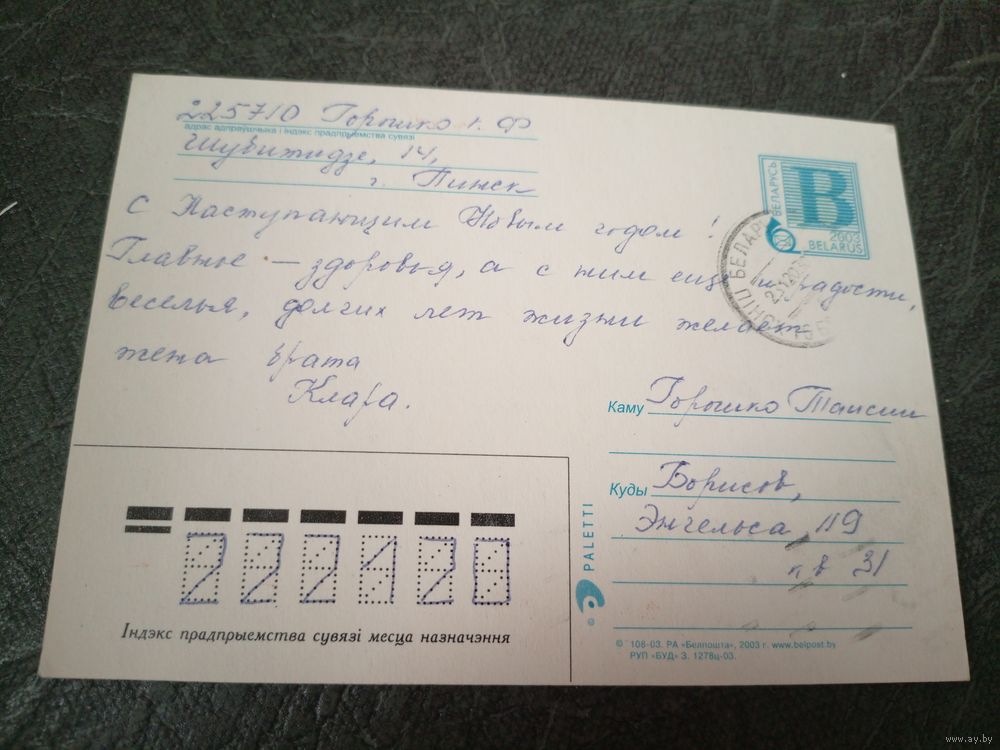 225710 Горошко К. Ф
адрас адпраўшчыка і індэкс прадпрыемства сувязі
14,
г. Пинск
С Наступающим Новым годом!
Главное – здоровья, а с ним ещё и радости,
веселья, долгих лет жизни желает
жена брата
Клара.
БЕЛАРУСЬ
B
2003
BELARUS
Каму Горошко Таисии
Куды Борисов,
Энгельса, 119
кв 31
222120
Індэкс прадпрыемства сувязі месца назначэння
© PALETTI
© 108-03. РА «Белпошта», 2003 г. www.belpost.by
РУП «БУД» З. 1278ц-03.
www.ay.by